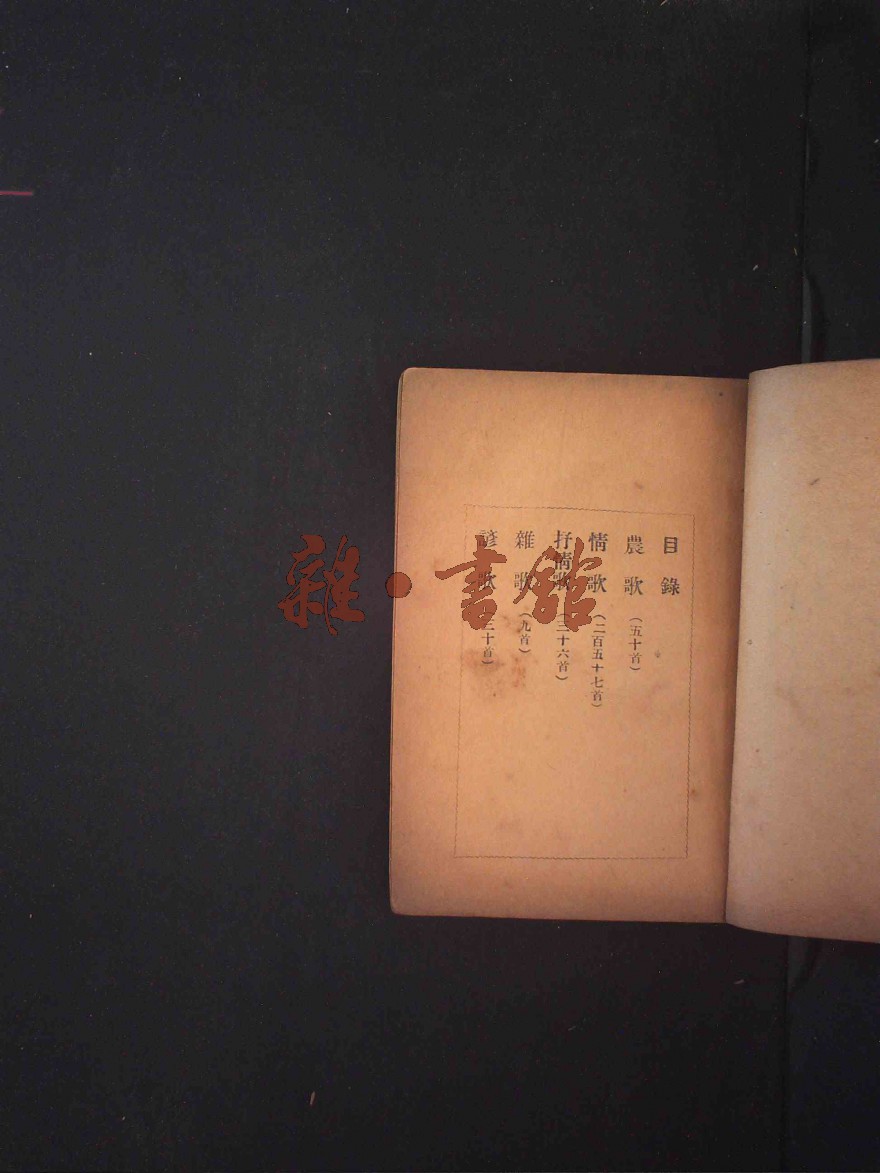 目錄
農歌（五十首）
情歌（二百五十七首）
抒情歌（三十六首）
雜歌（九首）
諺歌（三十首）
雜·書館